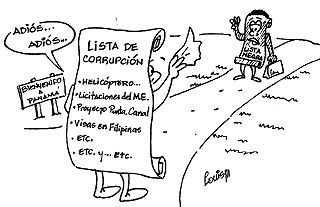 ADIÓS...
ADIÓS...
LISTA DE
CORRUPCIÓN
• HELICÓPTERO...
• Licitaciones del M.E.
• Proyecto Pnta. Canal
• Visas en Filipinas
• ETC.
• ETC. y ... ETC.
BIENVENIDO
A
PANAMÁ
LISTA
NEGRA